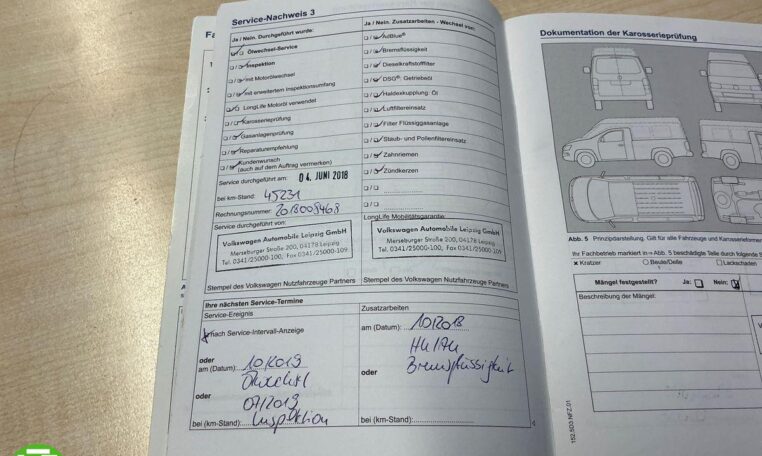 Service-Nachweis 3
Ja / Nein. Durchgeführt wurde:
Ölwechsel-Service
Inspektion
mit Motorölwechsel
mit erweitertem Inspektionsumfang
LongLife Motoröl verwendet
Karosserieprüfung
Gasanlagenprüfung
Reparaturempfehlung
Kundenwunsch
(auch auf dem Auftrag vermerken)
Service durchgeführt am: 04. JUNI 2018
bei km-Stand: 45231
Rechnungsnummer: 2018009468
Service durchgeführt von:
Volkswagen Automobile Leipzig GmbH
Merseburger Straße 200, 04178 Leipzig
Tel. 0341/25000-100, Fax 0341/25000-109
Stempel des Volkswagen Nutzfahrzeuge Partners
Ja / Nein. Zusatzarbeiten - Wechsel von:
AdBlue®
Bremsflüssigkeit
Dieselkraftstofffilter
DSG®: Getriebeöl
Haldexkupplung: Öl
Luftfiltereinsatz
Filter Flüssiggasanlage
Staub- und Pollenfiltereinsatz
Zahnriemen
Zündkerzen
LongLife Mobilitätsgarantie:
Volkswagen Automobile Leipzig GmbH
Merseburger Straße 200, 04178 Leipzig
Tel. 0341/25000-100, Fax 0341/25000-109
Stempel des Volkswagen Nutzfahrzeuge Partners
Ihre nächsten Service-Termine
Service-Ereignis
nach Service-Intervall-Anzeige
oder
am (Datum): 10/2019
Ölwechsel
oder
07/2019
bei (km-Stand): Inspektion
Zusatzarbeiten
am (Datum): 10/2018
HU/AU
oder Bremsflüssigkeit
bei (km-Stand):
4
Dokumentation der Karosserieprüfung
Abb. 5 Prinzipdarstellung. Gilt für alle Fahrzeuge und Karosserieformen
Ihr Fachbetrieb markiert in → Abb. 5 beschädigte Teile durch folgende
Kratzer Beule/Delle Lackschaden
Mängel festgestellt? Ja: Nein:
Beschreibung der Mängel:
152.5D3.NFZ.01